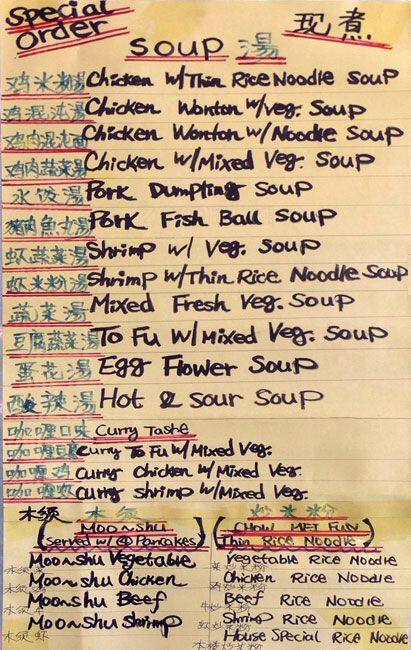 Special Order 现煮
SOUP 湯
鸡米粉湯 Chicken w/Thin Rice Noodle Soup
鸡混沌湯 Chicken Wonton w/veg. Soup
鸡肉混沌面 Chicken Wonton w/Noodle Soup
鸡肉蔬菜湯 Chicken w/Mixed Veg. Soup
水饺湯 Pork Dumpling Soup
猪肉魚丸湯 Pork Fish Ball Soup
虾蔬菜湯 Shrimp w/ Veg. Soup
虾米粉湯 Shrimp w/Thin Rice Noodle Soup
蔬菜湯 Mixed Fresh Veg. Soup
豆腐蔬菜湯 To Fu W/Mixed Veg. Soup
蛋花湯 Egg Flower Soup
酸辣湯 Hot & Sour Soup
咖喱口味 Curry Taste
咖喱豆腐 Curry To Fu w/Mixed Veg.
咖喱鸡 Curry Chicken w/Mixed Veg.
咖喱虾 Curry Shrimp w/Mixed Veg.
木须 木须
(Moo~shu
Served w/④ Pancakes)
Moo~shu Vegetable
Moo~shu Chicken
Moo~shu Beef
Moo~shu Shrimp
木须虾
炒米粉
(CHOW MEI FUN
Thin Rice Noodle)
Vegetable Rice Noodle
Chicken Rice Noodle
Beef Rice Noodle
Shrimp Rice Noodle
House Special Rice Noodle